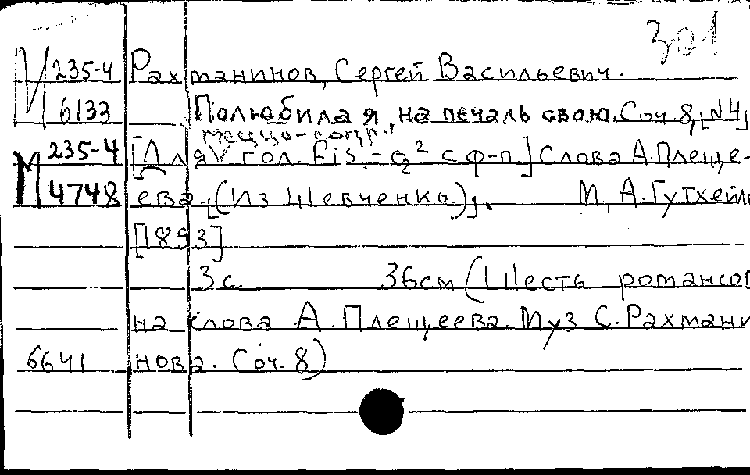 301
М 235-4 Рахманинов, Сергей Васильевич.
6133 Полюбила я на печаль свою. Соч. 8, [№4]
меццо-сопр.,
М 235-4 [Для гол. Fis₁-g² с ф-п.] Слова А. Плеще-
4748 ева. (Из Шевченко). М., А. Гутхейль
[1893]
3 с. 36 см (Шесть романсов
на слова А. Плещеева. Муз С. Рахмани
6641 нова. Соч. 8)